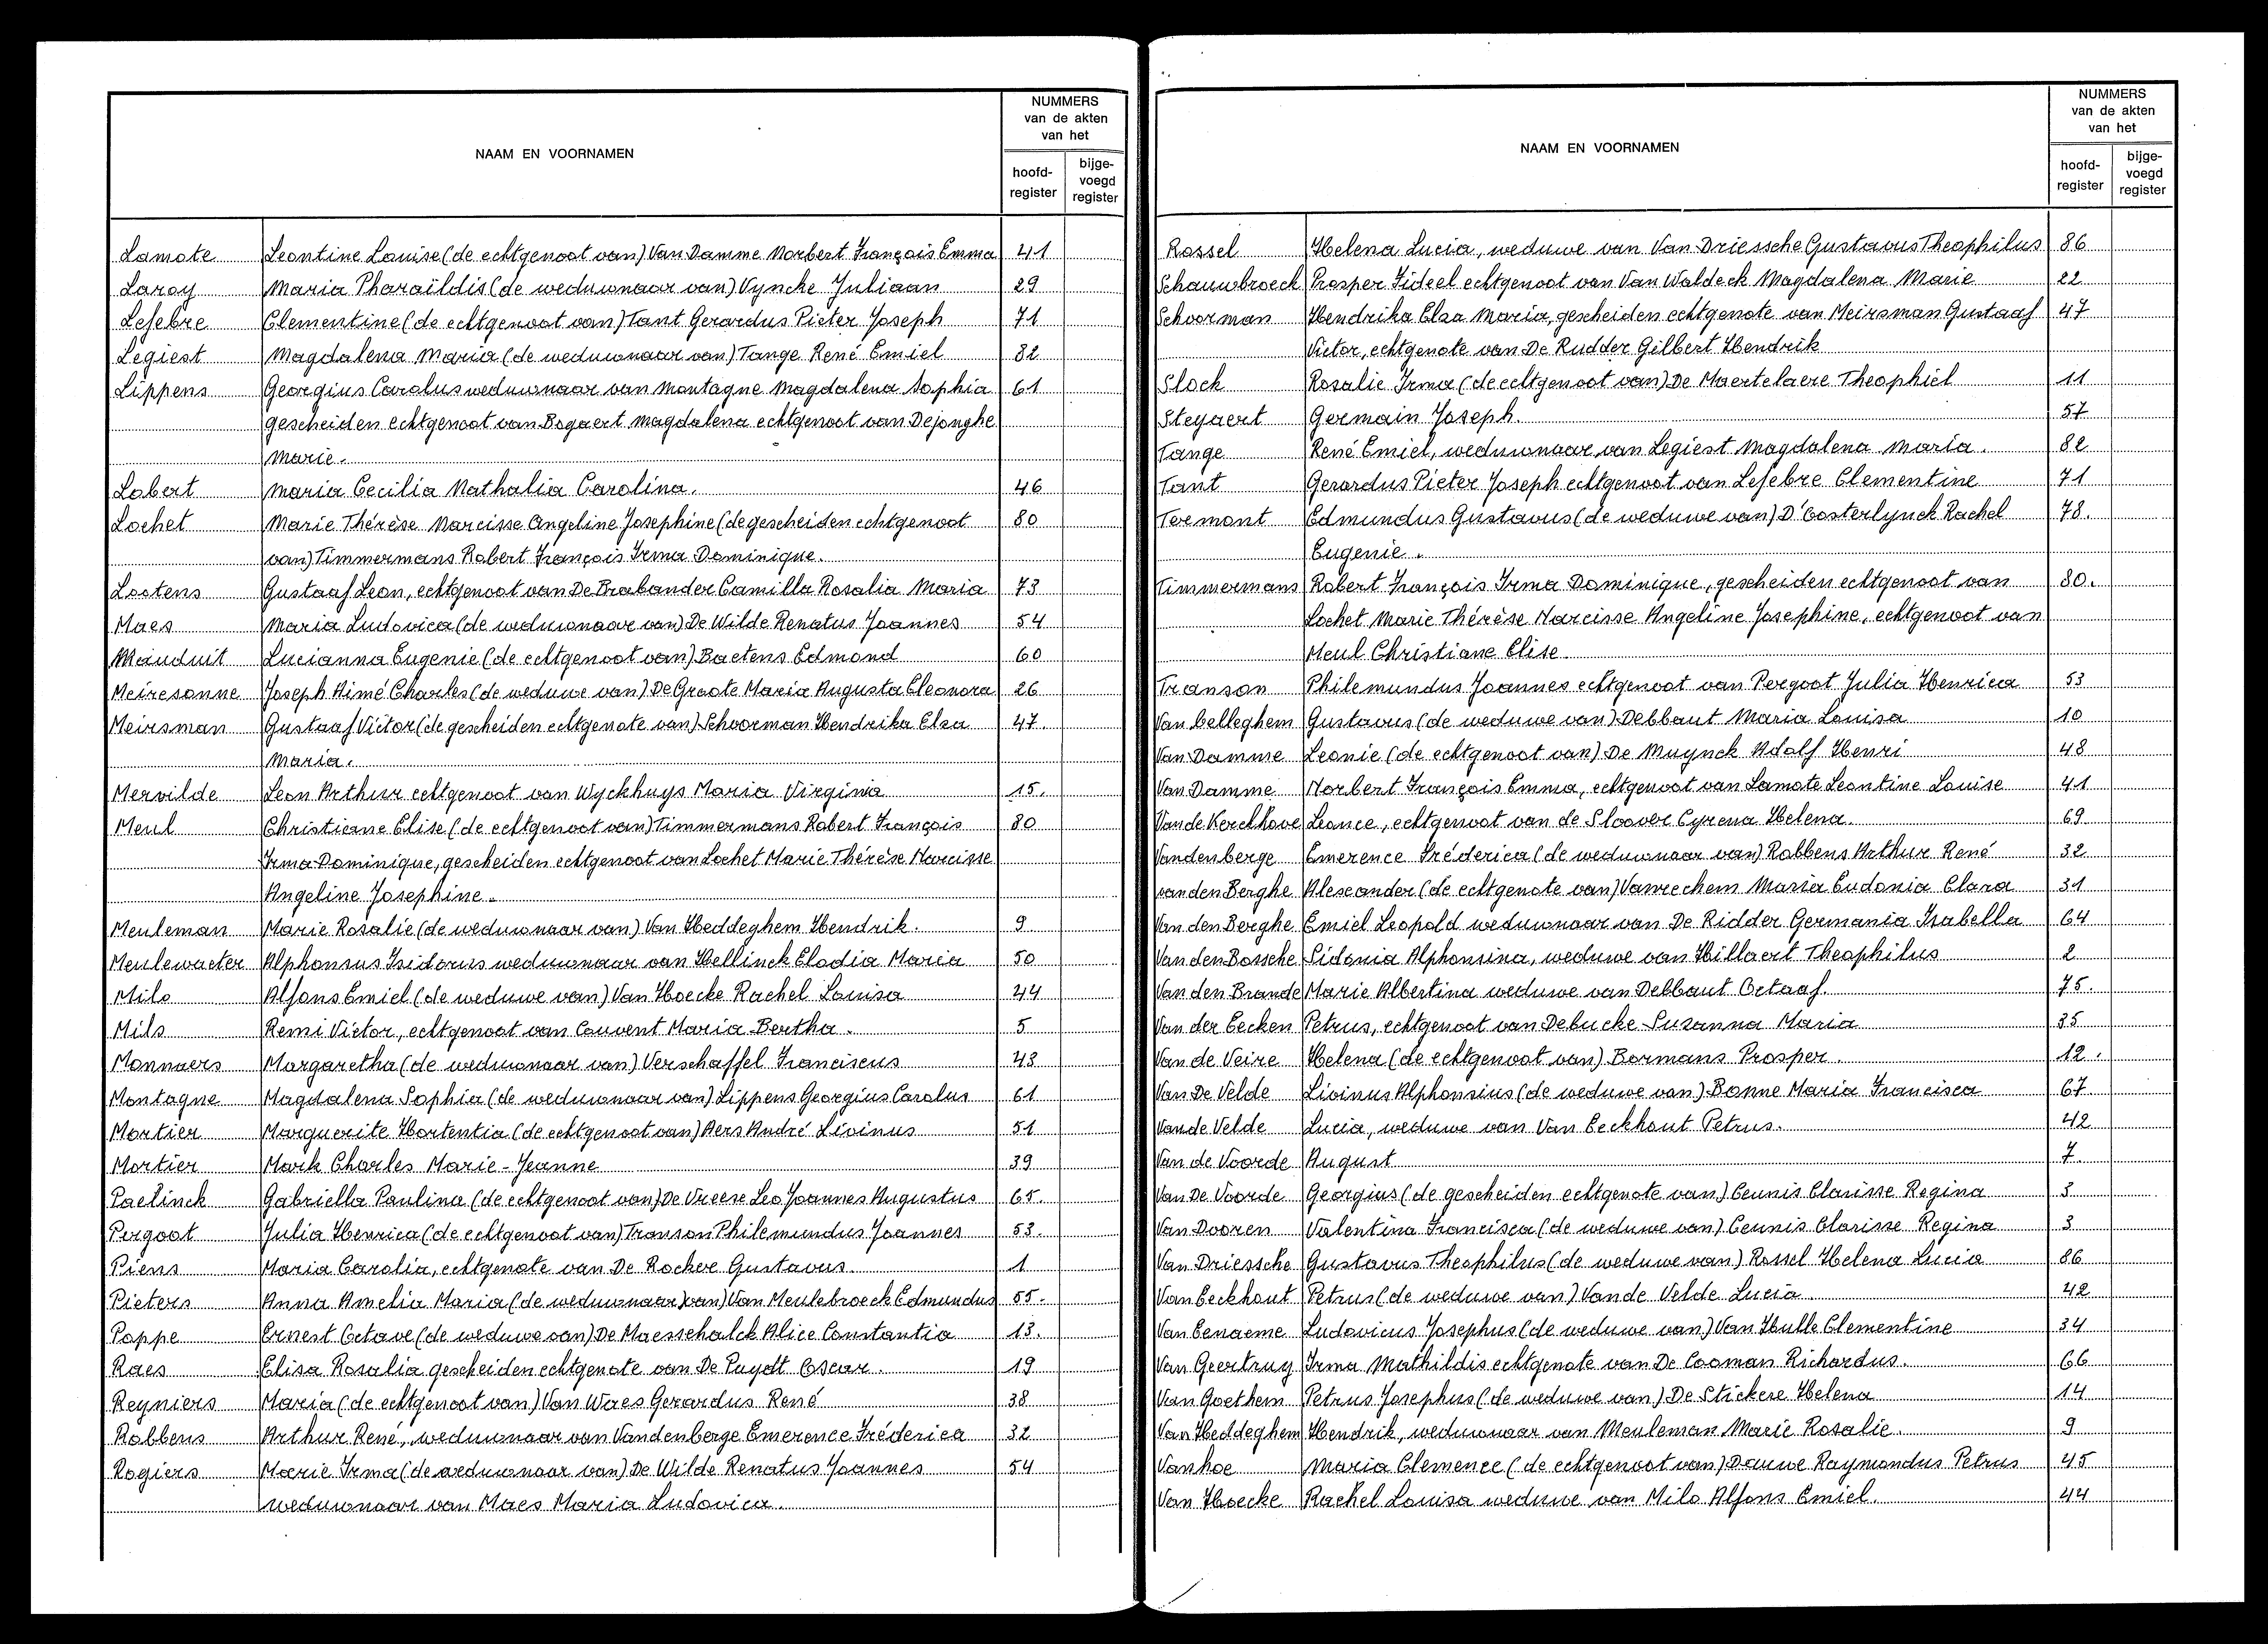 NAAM EN VOORNAMEN
NUMMERS
van de akten
van het
hoofd-
register
bijge-
voegd
register
Lamote Leontine Louise (de echtgenoot van) Van Damme Norbert François Emma 41
Laroy Maria Pharaïldis (de weduwnaar van) Vyncke Juliaan 29
Lefebre Clementine (de echtgenoot van) Tant Gerardus Pieter Joseph 71
Legiest Magdalena Maria (de weduwnaar van) Tange René Emiel 82
Lippens Georgius Carolus weduwnaar van Montagne Magdalena Sophia 61
gescheiden echtgenoot van Bogaert Magdalena echtgenoot van Dejonghe
Marie.
Lobert Maria Cecilia Nathalia Carolina. 46
Lochet Marie Thérèse Narcisse Angeline Josephine (de gescheiden echtgenoot 80
van) Timmermans Robert François Irma Dominique.
Lootens Gustaaf Leon, echtgenoot van De Brabander Camilla Rosalia Maria 73
Maes Maria Ludovica (de weduwnaar van) De Wilde Renatus Joannes 54
Mauduit Lucianna Eugenie (de echtgenoot van) Baetens Edmond 60
Meiresonne Joseph Aimé Charles (de weduwe van) De Groote Maria Augusta Eleonora 26
Meirsman Gustaaf Victor (de gescheiden echtgenote van) Schoorman Hendrika Elza 47.
Maria.
Mervilde Leon Arthur echtgenoot van Wyckhuys Maria Virginia 15.
Meul Christiane Elise (de echtgenoot van) Timmermans Robert François 80
Irma Dominique, gescheiden echtgenoot van Lochet Marie Thérèse Narcisse
Angeline Josephine.
Meuleman Marie Rosalie (de weduwnaar van) Van Heddeghem Hendrik. 9
Meulewaeter Alphonsus Isidorus weduwnaar van Hellinck Elodia Maria 50
Milo Alfons Emiel (de weduwe van) Van Hoecke Rachel Louisa 44
Mils Remi Victor, echtgenoot van Couvent Maria Bertha. 5
Monnaers Margaretha (de weduwnaar van) Verschaffel Franciscus 43
Montagne Magdalena Sophia (de weduwnaar van) Lippens Georgius Carolus 61
Mortier Marguerite Hortentia (de echtgenoot van) Aers André Livinus 51
Mortier Mark Charles Marie-Jeanne 39
Paelinck Gabriella Paulina (de echtgenoot van) De Vreese Leo Joannes Augustus 65.
Pergoot Julia Henrica (de echtgenoot van) Transon Philemundus Joannes 53.
Piens Maria Carolia, echtgenote van De Rocker Gustavus. 1
Pieters Anna Amelia Maria (de weduwnaar van) Van Meulebroeck Edmundus 55.
Poppe Ernest Octave (de weduwe van) De Maesschalck Alice Constantia 13.
Raes Elisa Rosalia gescheiden echtgenote van De Puydt Oscar. 19
Reyniers Maria (de echtgenoot van) Van Waes Gerardus René 38
Robbens Arthur René, weduwnaar van Vandenberge Emerence Fréderica 32
Rogiers Marie Irma (de weduwnaar van) De Wilde Renatus Joannes 54
weduwnaar van Maes Maria Ludovica.
NAAM EN VOORNAMEN
NUMMERS
van de akten
van het
hoofd-
register
bijge-
voegd
register
Rossel Helena Lucia, weduwe van Van Driessche Gustavus Theophilus 86
Schauwbroeck Prosper Fideel echtgenoot van Van Waldeck Magdalena Marie 22
Schoorman Hendrika Elza Maria, gescheiden echtgenote van Meirsman Gustaaf 47
Victor, echtgenote van De Rudder Gilbert Hendrik
Slock Rosalie Irma (de echtgenoot van) De Maertelaere Theophiel 11
Steyaert Germain Joseph. 57
Tange René Emiel, weduwnaar van Legiest Magdalena Maria. 82
Tant Gerardus Pieter Joseph echtgenoot van Lefebre Clementine 71
Termont Edmundus Gustavus (de weduwe van) D'Oosterlynck Rachel 78.
Eugenie.
Timmermans Robert François Irma Dominique, gescheiden echtgenoot van 80.
Lochet Marie Thérèse Narcisse Angeline Josephine, echtgenoot van
Meul Christiane Elise.
Transon Philemundus Joannes echtgenoot van Pergoot Julia Henrica 53
Van Celleghem Gustavus (de weduwe van) Debbaut Maria Louisa 10
Van Damme Leonie (de echtgenoot van) De Muynck Adolf Henri 48
Van Damme Norbert François Emma, echtgenoot van Lamote Leontine Louise 41
Van de Kerckhove Leonce, echtgenoot van de Sloover Cyrena Helena. 69
Vandenberge Emerence Fréderica (de weduwnaar van) Robbens Arthur René 32
van den Berghe Alexander (de echtgenote van) Vanrechem Maria Eudonia Clara 31
Van den Berghe Emiel Leopold weduwnaar van De Ridder Germania Isabella 64
Van den Bossche Sidonia Alphonsina, weduwe van Hillaert Theophilus 2
Van den Brande Marie Albertina weduwe van Debbaut Octaaf. 75.
Van der Eecken Petrus, echtgenoot van Debucke Suzanna Maria 35
Van de Veire Helena (de echtgenoot van) Bormans Prosper. 12.
Van De Velde Livinus Alphonsius (de weduwe van) Bonne Maria Francisca 67
Van de Velde Lucia, weduwe van Van Eeckhout Petrus. 42
Van de Voorde August 7
Van De Voorde Georgius (de gescheiden echtgenote van) Ceunis Clarisse Regina 3
Van Dooren Valentina Francisca (de weduwe van) Ceunis Clarisse Regina 3
Van Driessche Gustavus Theophilus (de weduwe van) Rossel Helena Lucia 86
Van Eeckhout Petrus (de weduwe van) Van de Velde Lucia. 42
Van Eenaeme Ludovicus Josephus (de weduwe van) Van Hulle Clementine 34
Van Geertruy Irma Mathildis echtgenote van De Cooman Richardus. 66
Van Goethem Petrus Josephus (de weduwe van) De Stickere Helena 14
Van Heddeghem Hendrik, weduwnaar van Meuleman Marie Rosalie. 9
Vanhoe Maria Clemence (de echtgenoot van) Dauwe Raymondus Petrus 45
Van Hoecke Rachel Louisa weduwe van Milo Alfons Emiel. 44